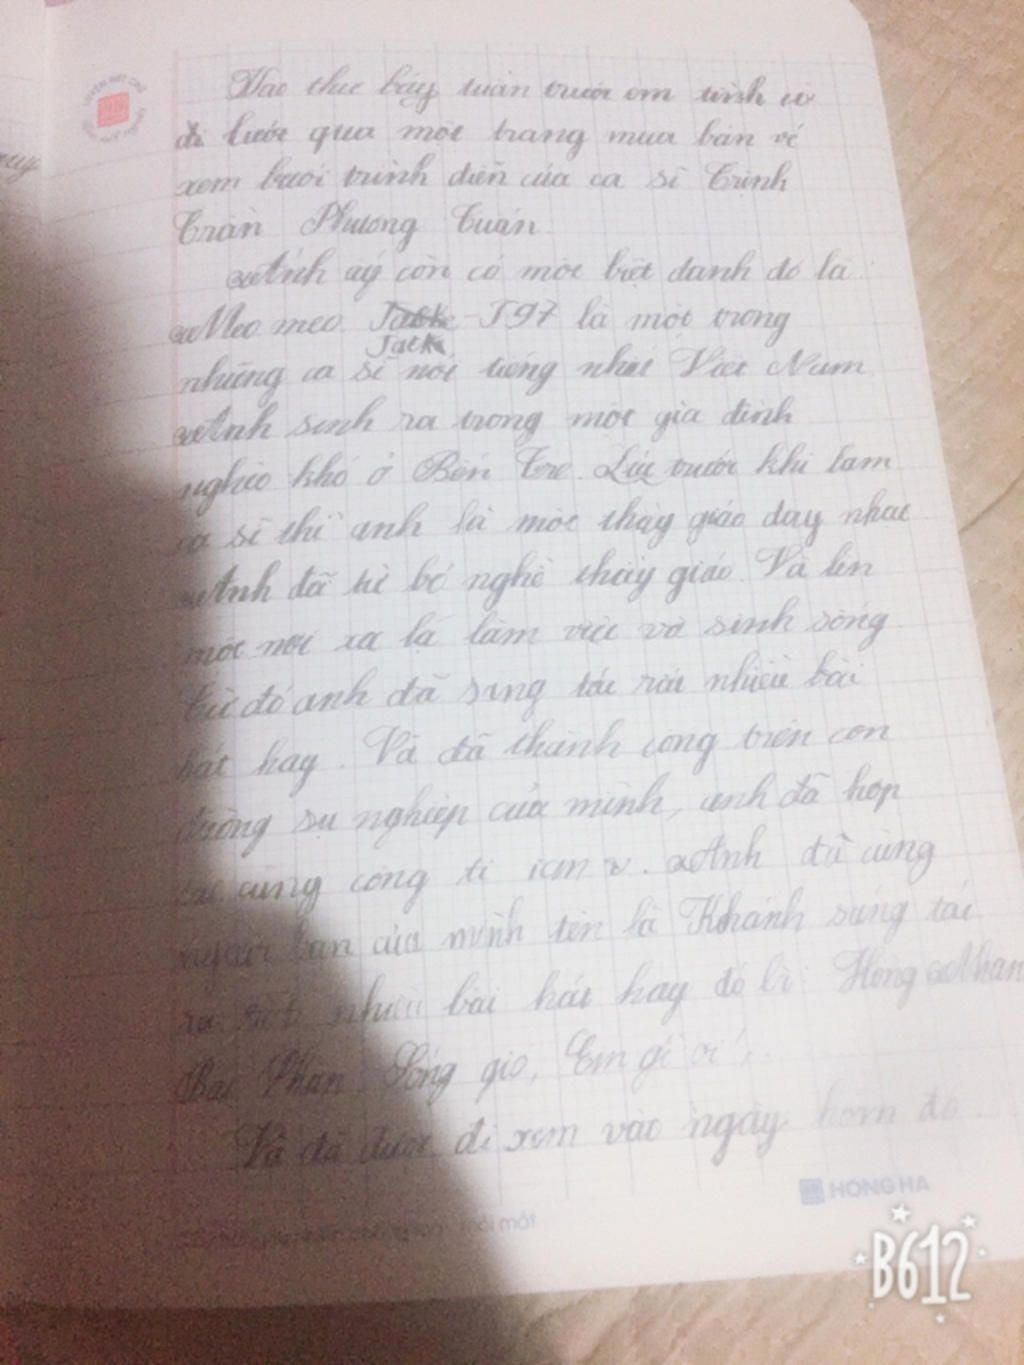 Vào thứ bảy tuần trước em tình cờ
đi lướt qua một trang mua bán vé
xem buổi trình diễn của ca sĩ Trịnh
Trần Phương Tuấn
Anh ấy còn có một biệt danh đó là
Meo meo. Jack - J97 là một trong
Jack
những ca sĩ nổi tiếng nhất Việt Nam
Anh sinh ra trong một gia đình
nghèo khó ở Bến Tre. Lúc trước khi làm
ca sĩ thì anh là một thầy giáo dạy nhạc
Anh đã từ bỏ nghề thầy giáo. Và lên
một nơi xa lạ làm việc và sinh sống
Từ đó anh đã sáng tác rất nhiều bài
hát hay. Và đã thành công trên con
đường sự nghiệp của mình, anh đã hợp
tác cùng công ti icm. Anh đã cùng
người bạn của mình tên là Khánh sáng tác
ra rất nhiều bài hát hay đó là: Hồng Nhan
Bạc Phận, Sóng gió, Em gì ơi,
Và đã được đi xem vào ngày hôm đó.
HONG HA
B612